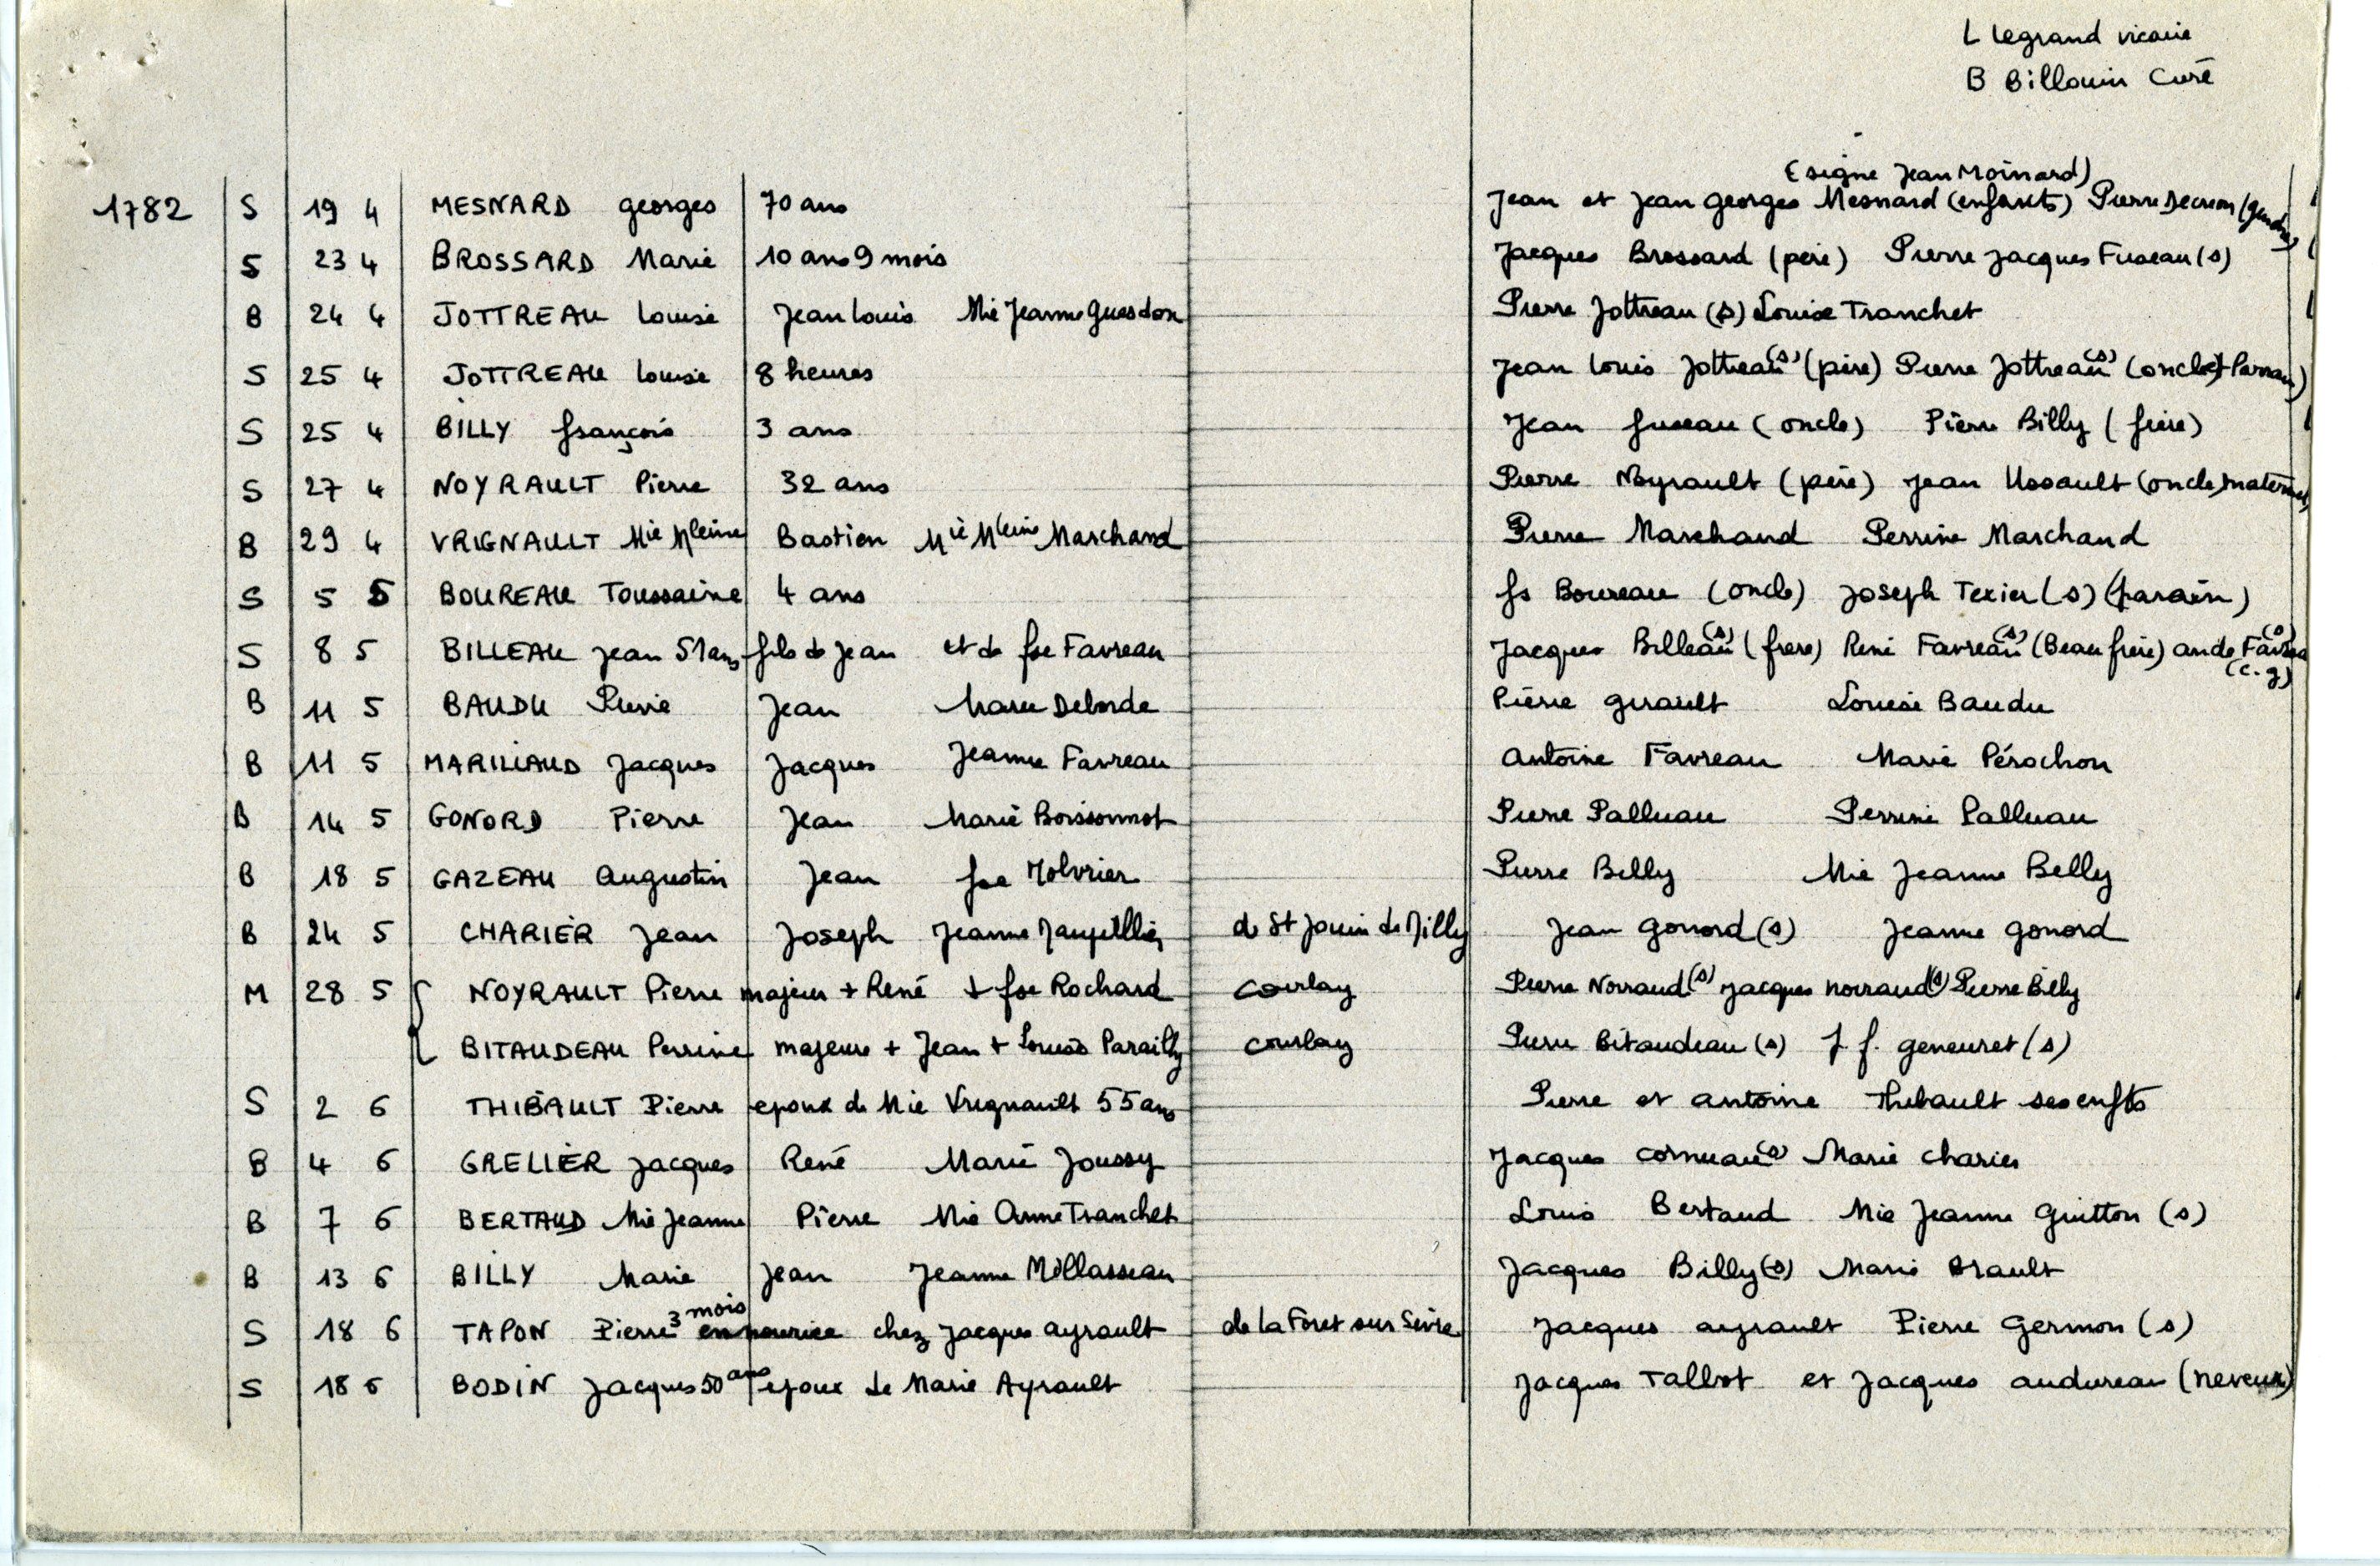 L Legrand vicaire
B Billouin Curé
(signe Jean Moinard)
1782 S 19 4 MESNARD georges 70 ans Jean et Jean Georges Mesnard (enfants) Pierre (gendre)
S 23 4 BROSSARD Marie 10 ans 9 mois Jacques Brossard (père) Pierre Jacques Fuseau (s)
B 24 4 JOTTREAU Louise Jean Louis Mie Jeanne Guesdon Pierre Jottreau (s) Louise Tranchet
S 25 4 JOTTREAU Louise 8 heures Jean Louis Jottreau (s) (père) Pierre Jottreau (s) (oncle + Parrain)
S 25 4 BILLY françois 3 ans Jean fuseau (oncle) Pierre Billy (frère)
S 27 4 NOYRAULT Pierre 32 ans Pierre Noyrault (père) Jean Ussault (oncle maternel)
B 29 4 VRIGNAULT Mie Mleine Bastien Mie Mleine Marchand Pierre Marchand Perrine Marchand
S 5 5 BOUREAU Toussaine 4 ans fs Boureau (oncle) Joseph Texier (s) (parain)
S 8 5 BILLEAU Jean 51 ans fils de Jean et de fse Favreau Jacques Billeau (s) (frere) René Favreau (s) (Beau frère) ande Favreau (s) (c. g)
B 11 5 BAUDU Pierre Jean Marie Deborde Pierre Girault Louise Baudu
B 11 5 MARILLAUD Jacques Jacques Jeanne Favreau Antoine Favreau Marie Pérochon
B 14 5 GONORD Pierre Jean Marie Boissonnot Pierre Palluau Perrine Palluau
B 18 5 GAZEAU Augustin Jean fse Molvrier Pierre Billy Mie Jeanne Billy
B 24 5 CHARIER Jean Joseph Jeanne de St Jouin de Milly Jean Gonord (s) Jeanne Gonord
M 28 5 NOYRAULT Pierre majeur + René + fse Rochard Courlay Pierre Norraud (s) Jacques norraud (s) Pierre Billy
BITAUDEAU Perrine majeure + Jean + Louise Parailly Courlay Pierre Bitaudeau (s) J. f. geneuret (s)
S 2 6 THIBAULT Pierre epoux de Mie Vrignault 55 ans Pierre et antoine Thibault ses enfts
B 4 6 GRELIER Jacques René Marie Joussy Jacques cornuau (s) Marie Charier
B 7 6 BERTAUD Mie Jeanne Pierre Mie Anne Tranchet Louis Bertaud Mie Jeanne Guitton (s)
B 13 6 BILLY Marie Jean Jeanne Millasseau Jacques Billy (s) Marie Brault
S 18 6 TAPON Pierre 3 mois en nourice chez Jacques Ayrault de La Foret sur Sèvre Jacques ayrault Pierre Germon (s)
S 18 6 BODIN Jacques 50 ans epoux de Marie Ayrault Jacques Talbot et Jacques audureau (neveux)